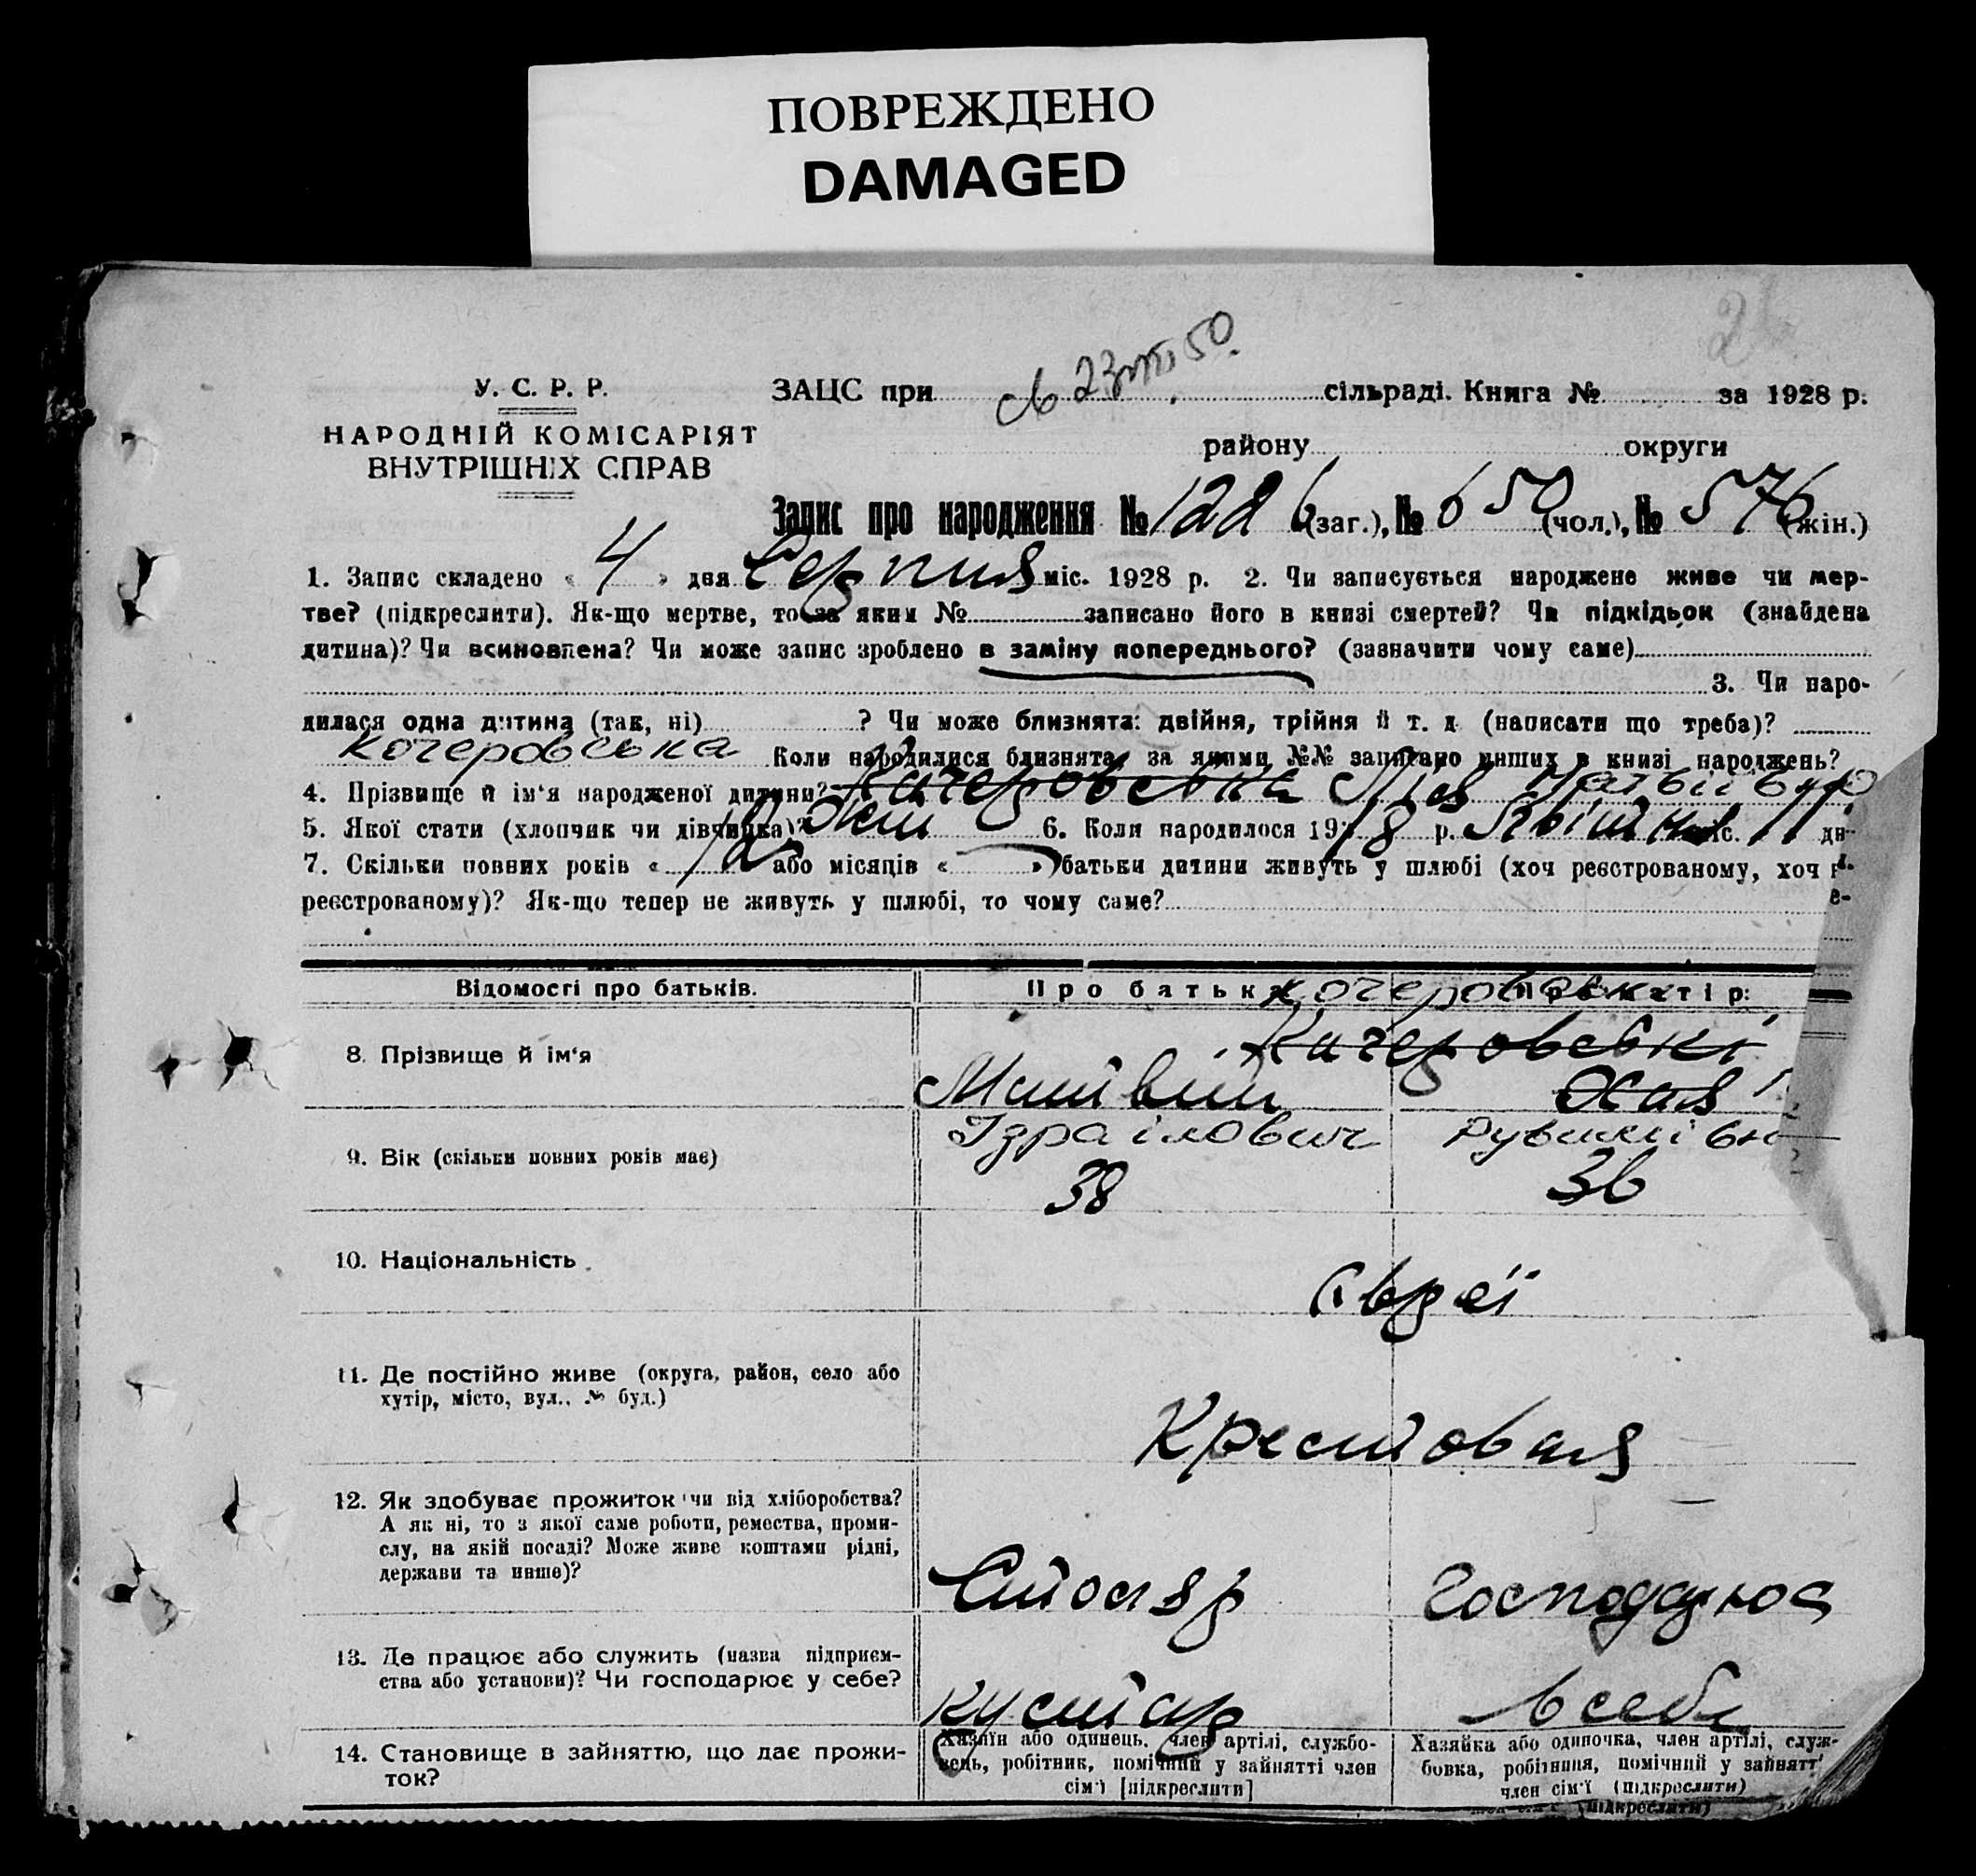 ПОВРЕЖДЕНО
DAMAGED
У. С. Р. Р.
НАРОДНІЙ КОМІСАРІЯТ
ВНУТРІШНІХ СПРАВ
ЗАЦС при 23 VIII 50. сільраді. Книга № за 1928 р.
району округи
Запис про народження № 1226 (заг.), № 650 (чол.), № 576 (жін.)
1. Запис складено « 4 » дня Серпня міс. 1928 р. 2. Чи записується народжене живе чи мер-
тве? (підкреслити). Як-що мертве, то за яким № записано його в книзі смертей? Чи підкідьок (знайдена
дитина)? Чи всиновлена? Чи може запис зроблено в заміну попереднього? (зазначити чому саме)
3. Чи наро-
дилася одна дитина (так, ні) ? Чи може близнята: двійня, трійня й т. д (написати що треба)?
Кочеровська Коли народилися близнята, за якими №№ записано инших в книзі народжень?
4. Прізвище й ім'я народженої дитини? Качеровська Матвіївна
5. Якої стати (хлопчик чи дівчинка)? Жін 6. Коли народилося 19 8 р. Квітня міс. 11 дн
7. Скільки повних років « 12 або місяців « » батьки дитини живуть у шлюбі (хоч реєстрованому, хоч
реєстрованому)? Як-що тепер не живуть у шлюбі, то чому саме?
Відомості про батьків. Про батька Про матір:
Кочеровські
Качеровські
8. Прізвище й ім'я Матвій Хая
Ізраілович Рувинівн
9. Вік (скільки повних років має) 38 36
10. Національність Євреї
11. Де постійно живе (округа, район, село або
хутір, місто, вул., № буд.)
Крестовая
12. Як здобуває прожиток чи від хліборобства?
А як ні, то з якої саме роботи, ремества, проми-
слу, на якій посаді? Може живе коштами рідні,
держави та инше)?
Столяр Господарює
13. Де працює або служить (назва підприєм-
ства або установи)? Чи господарює у себе?
Кустар в себе
14. Становище в зайняттю, що дає прожи-
ток?
Хазяїн або одинець. член артілі, службо-
вець, робітник, помічний у зайнятті член
сім'ї [підкреслити]
Хазяйка або одиночка, член артілі, служ-
бовка, робітниця, помічний у зайнятт
член сім'ї (підкреслити)
(підкреслити)